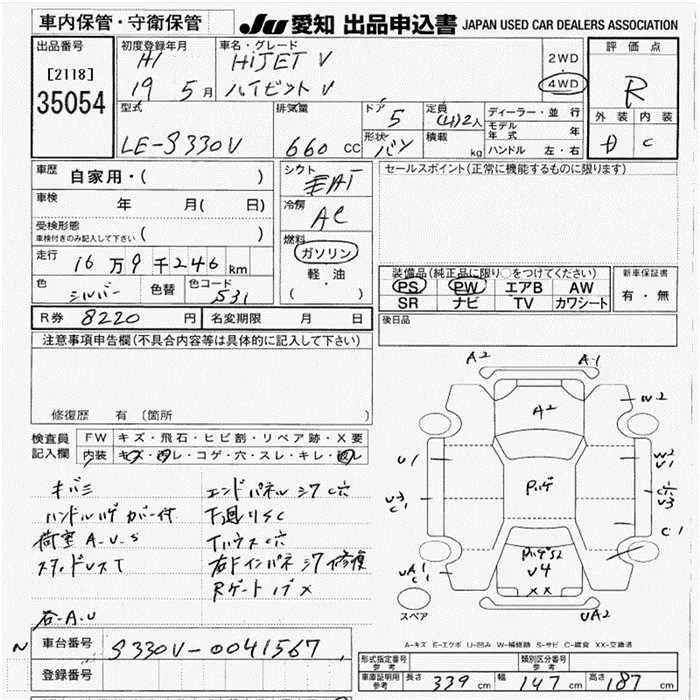 車内保管・守衛保管
JU 愛知 出品申込書 JAPAN USED CAR DEALERS ASSOCIATION
出品番号
[2118]
35054
初度登録年月
H
19 5月
車名・グレード
HiJET V
ハイゼット V
2WD
4WD
評価点
R
外装 内装
C
型式
LE-S330V
排気量
660 CC
ドア
5
形状
バン
定員
(4)2人
積載
kg
ディーラー・並行
モデル年式 年
ハンドル 左・右
車歴 自家用・( )
車検 年 月( 日)
受検形態
車検付きのみ記入して下さい ( )
走行 16万9千246km
色 シルバー 色替 色コード S31
シフト
AT
冷房
AC
燃料
ガソリン
軽油
( )
セールスポイント(正常に機能するものに限ります)
装備品(純正品に限り○をつけてください)
PS PW エアB AW
SR ナビ TV カワシート
新車保証書
有・無
R券 8220 円 名変期限 月 日
後日品
注意事項申告欄(不具合内容等は具体的に記入して下さい)
修復歴 有 (箇所
検査員記入欄
FW キズ・飛石・ヒビ割・リペア跡・X要
内装 キズ・汚レ・コゲ・穴・スレ・キレ・破レ
キバミ
ハンドルハゲ カバー付
荷室 A.U.S
各-A.U
エンドパネル シワ C穴
下廻りSC
右Fインパネ シワ修復
Rゲート
A2
A-1
A2
W2
U1
W2
U1
U3
C1
C穴
U3
C1
UA1
C1
U4
XX
UA2
スペア
A-キズ E-エクボ U-凹み W-補修跡 S-サビ C-腐食 XX-交換済
N
車台番号 S330V-0041567
登録番号
形式指定番号
参考
類別区分番号
参考
車庫証明用
参考
長さ 339 cm 幅 147 cm 高さ 187 cm